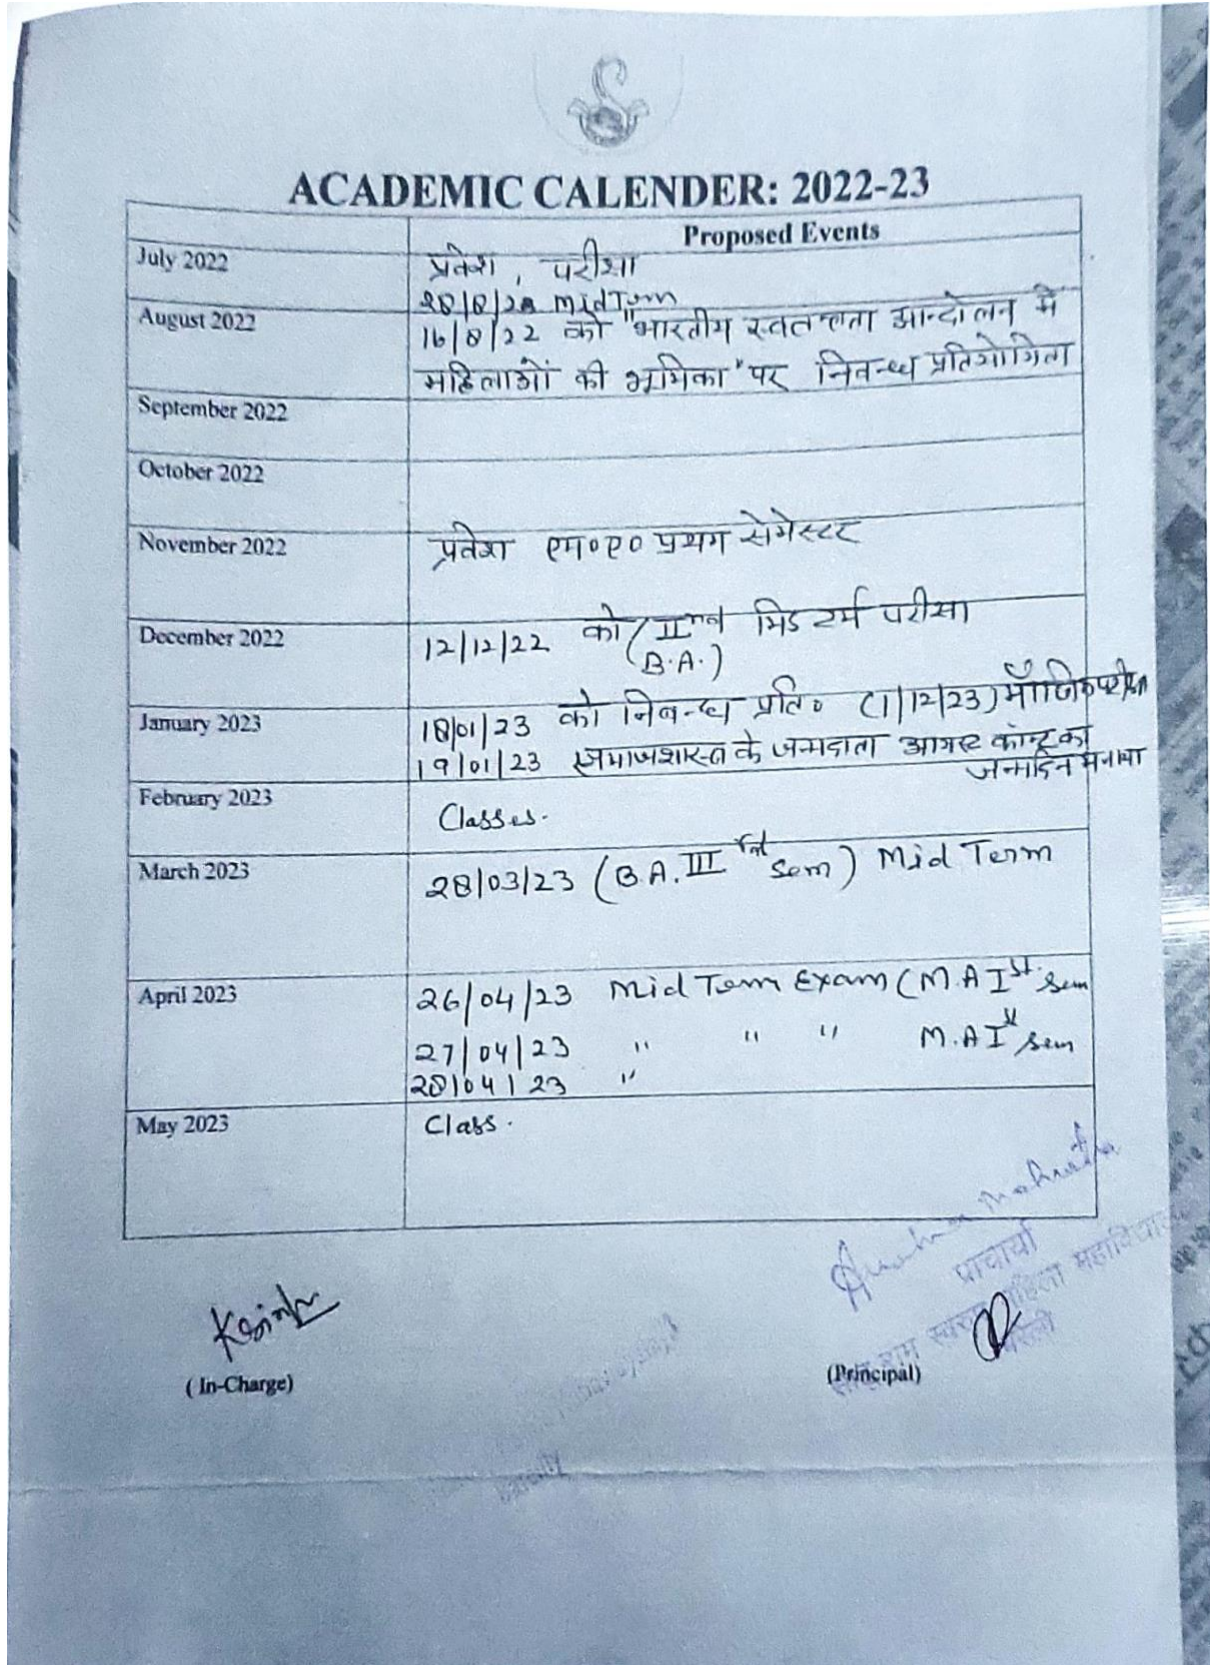 ACADEMIC CALENDER: 2022-23
Proposed Events
July 2022
प्रवेश, परीक्षा
August 2022
MidTerm
16/8/22 को "भारतीय स्वतन्त्रता आन्दोलन में
महिलाओं की भूमिका" पर निबन्ध प्रतियोगिता
September 2022
October 2022
November 2022
प्रवेश एम०ए० प्रथम सेमेस्टर
December 2022
12/12/22 को (IInd मिड टर्म परीक्षा
B.A.)
January 2023
18/01/23 को निबन्ध प्रति० (1/12/23)
19/01/23 समाजशास्त्र के जन्मदाता आगस्ट कॉम्ट का
जन्मदिन मनाया
February 2023
Classes.
March 2023
28/03/23 (B.A. III Sem) Mid Term
April 2023
26/04/23 Mid Term Exam (M.A Ist Sem
27/04/23 " " " M.A Ist Sem
28/04/23 "
May 2023
Class.
प्राचार्या
राम स्वरूप महिला महाविद्यालय
बरेली
(In-Charge)
(Principal)